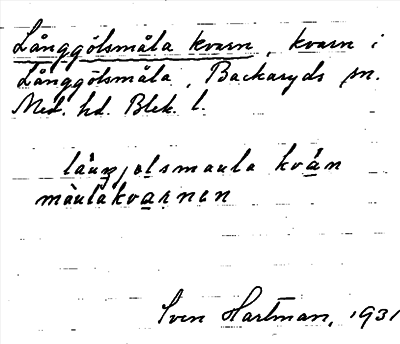 Långgölsmåla kvarn, kvarn i
Långgölsmåla, Backaryds sn.
Med. hd. Blek. l.
låŋjolsmaula kván
màulakvarnen
Sven Hartman, 1931